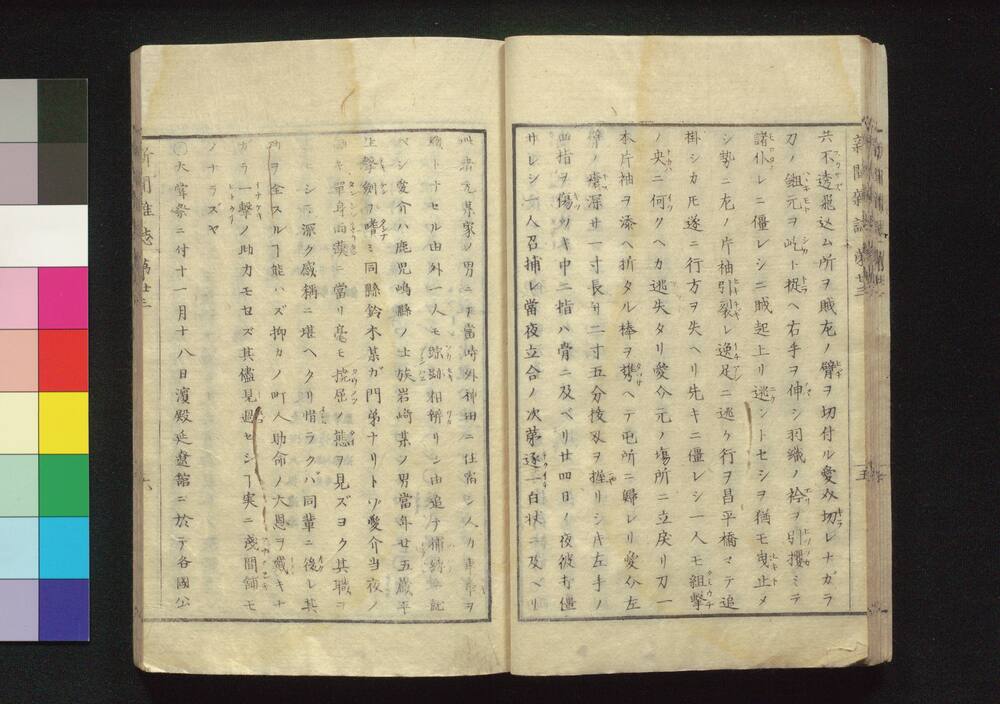 新聞雜誌 第廿三
五
共不透飛込ム所ヲ賊左ノ臂ヲ切付ル愛介切レナガラ
刀ノ鎺元ヲ屹ト捉ヘ右手ヲ伸シ羽織ノ衿ヲ引攫ミテ
諸仆レニ僵レシニ賊起上リ逃ントセシヲ猶モ曳止メ
シ勢ニ左ノ片袖引裂レ逸足ニ逃ケ行ヲ昌平橋マテ追
掛シカ𪜈遂ニ行方ヲ失ヘリ先キニ僵レシ一人モ組撃
ノ央ニ何クヘカ逃失タリ愛介元ノ塲所ニ立戾リ刀一
本片袖ヲ添ヘ折タル棒ヲ携ヘテ屯所ニ歸レリ愛介左
臂ノ疵深サ一寸長サ二寸五分後刄ヲ握リシ𬼀左手ノ
四指ヲ傷ツキ中二指ハ骨ニ及ベリ廿四日ノ夜彼打僵
サレシ一人召捕レ當夜立合ノ次第逐一白狀ニ及ベリ
此者元某家ノ男ニテ當時外神田ニ住宿シ人力車ヲ
職トナセル由外一人モ踪跡相辨リシ由追テ捕縛ニ就
ベシ愛介ハ鹿児嶋縣ノ士族岩﨑某ノ男當年廿五歳平
生擊劔ヲ嗜ミ同縣鈴木某ガ門弟ナリトゾ愛介當夜ノ
働キ單身両賊ニ當リ毫モ撓屈ノ態ヲ見ズヨク其職ヲ
シ 深ク感稱ニ堪ヘタリ惜ラクハ同輩ニ後レ其
ヲ全スルヿ能ハズ抑カノ町人助命ノ大恩ヲ戴キナ
カラ一擊ノ助力モセズ其儘見過セシヿ実ニ淺間鋪モ
ノナラズヤ
○大嘗祭ニ付十一月十八日濱殿延遼館ニ於テ各國公
新聞雜誌 第廿三
六